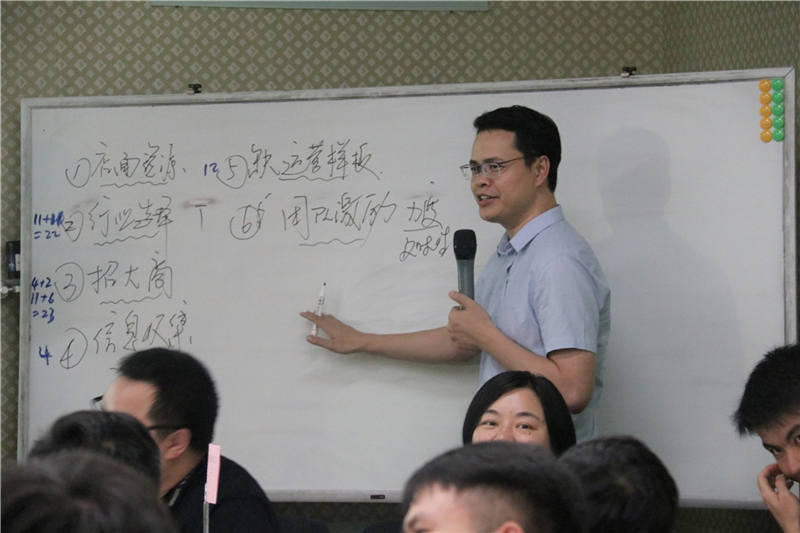 ①店面资源. 12 ⑤缺运营样板.
11+11=22 ②行业选择 T ⑥扩团队激励 力度
③招大商
4+2
11+6
=23
4 ④信息收集.